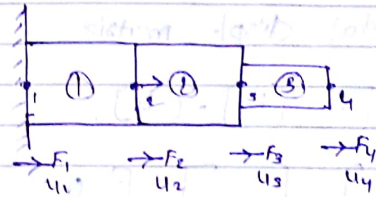 1 ① 2 ② 3 ③ 4
F1 F2 F3 F4
u1 u2 u3 u4